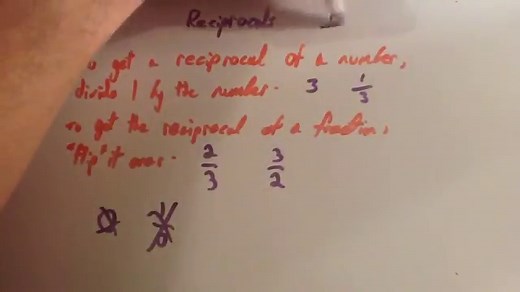 Reciprocals
o get a reciprocal of a number,
divide 1 by the number. 3 1/3
To get the reciprocal of a fraction,
"flip" it over. 2/3 3/2
0 1/0